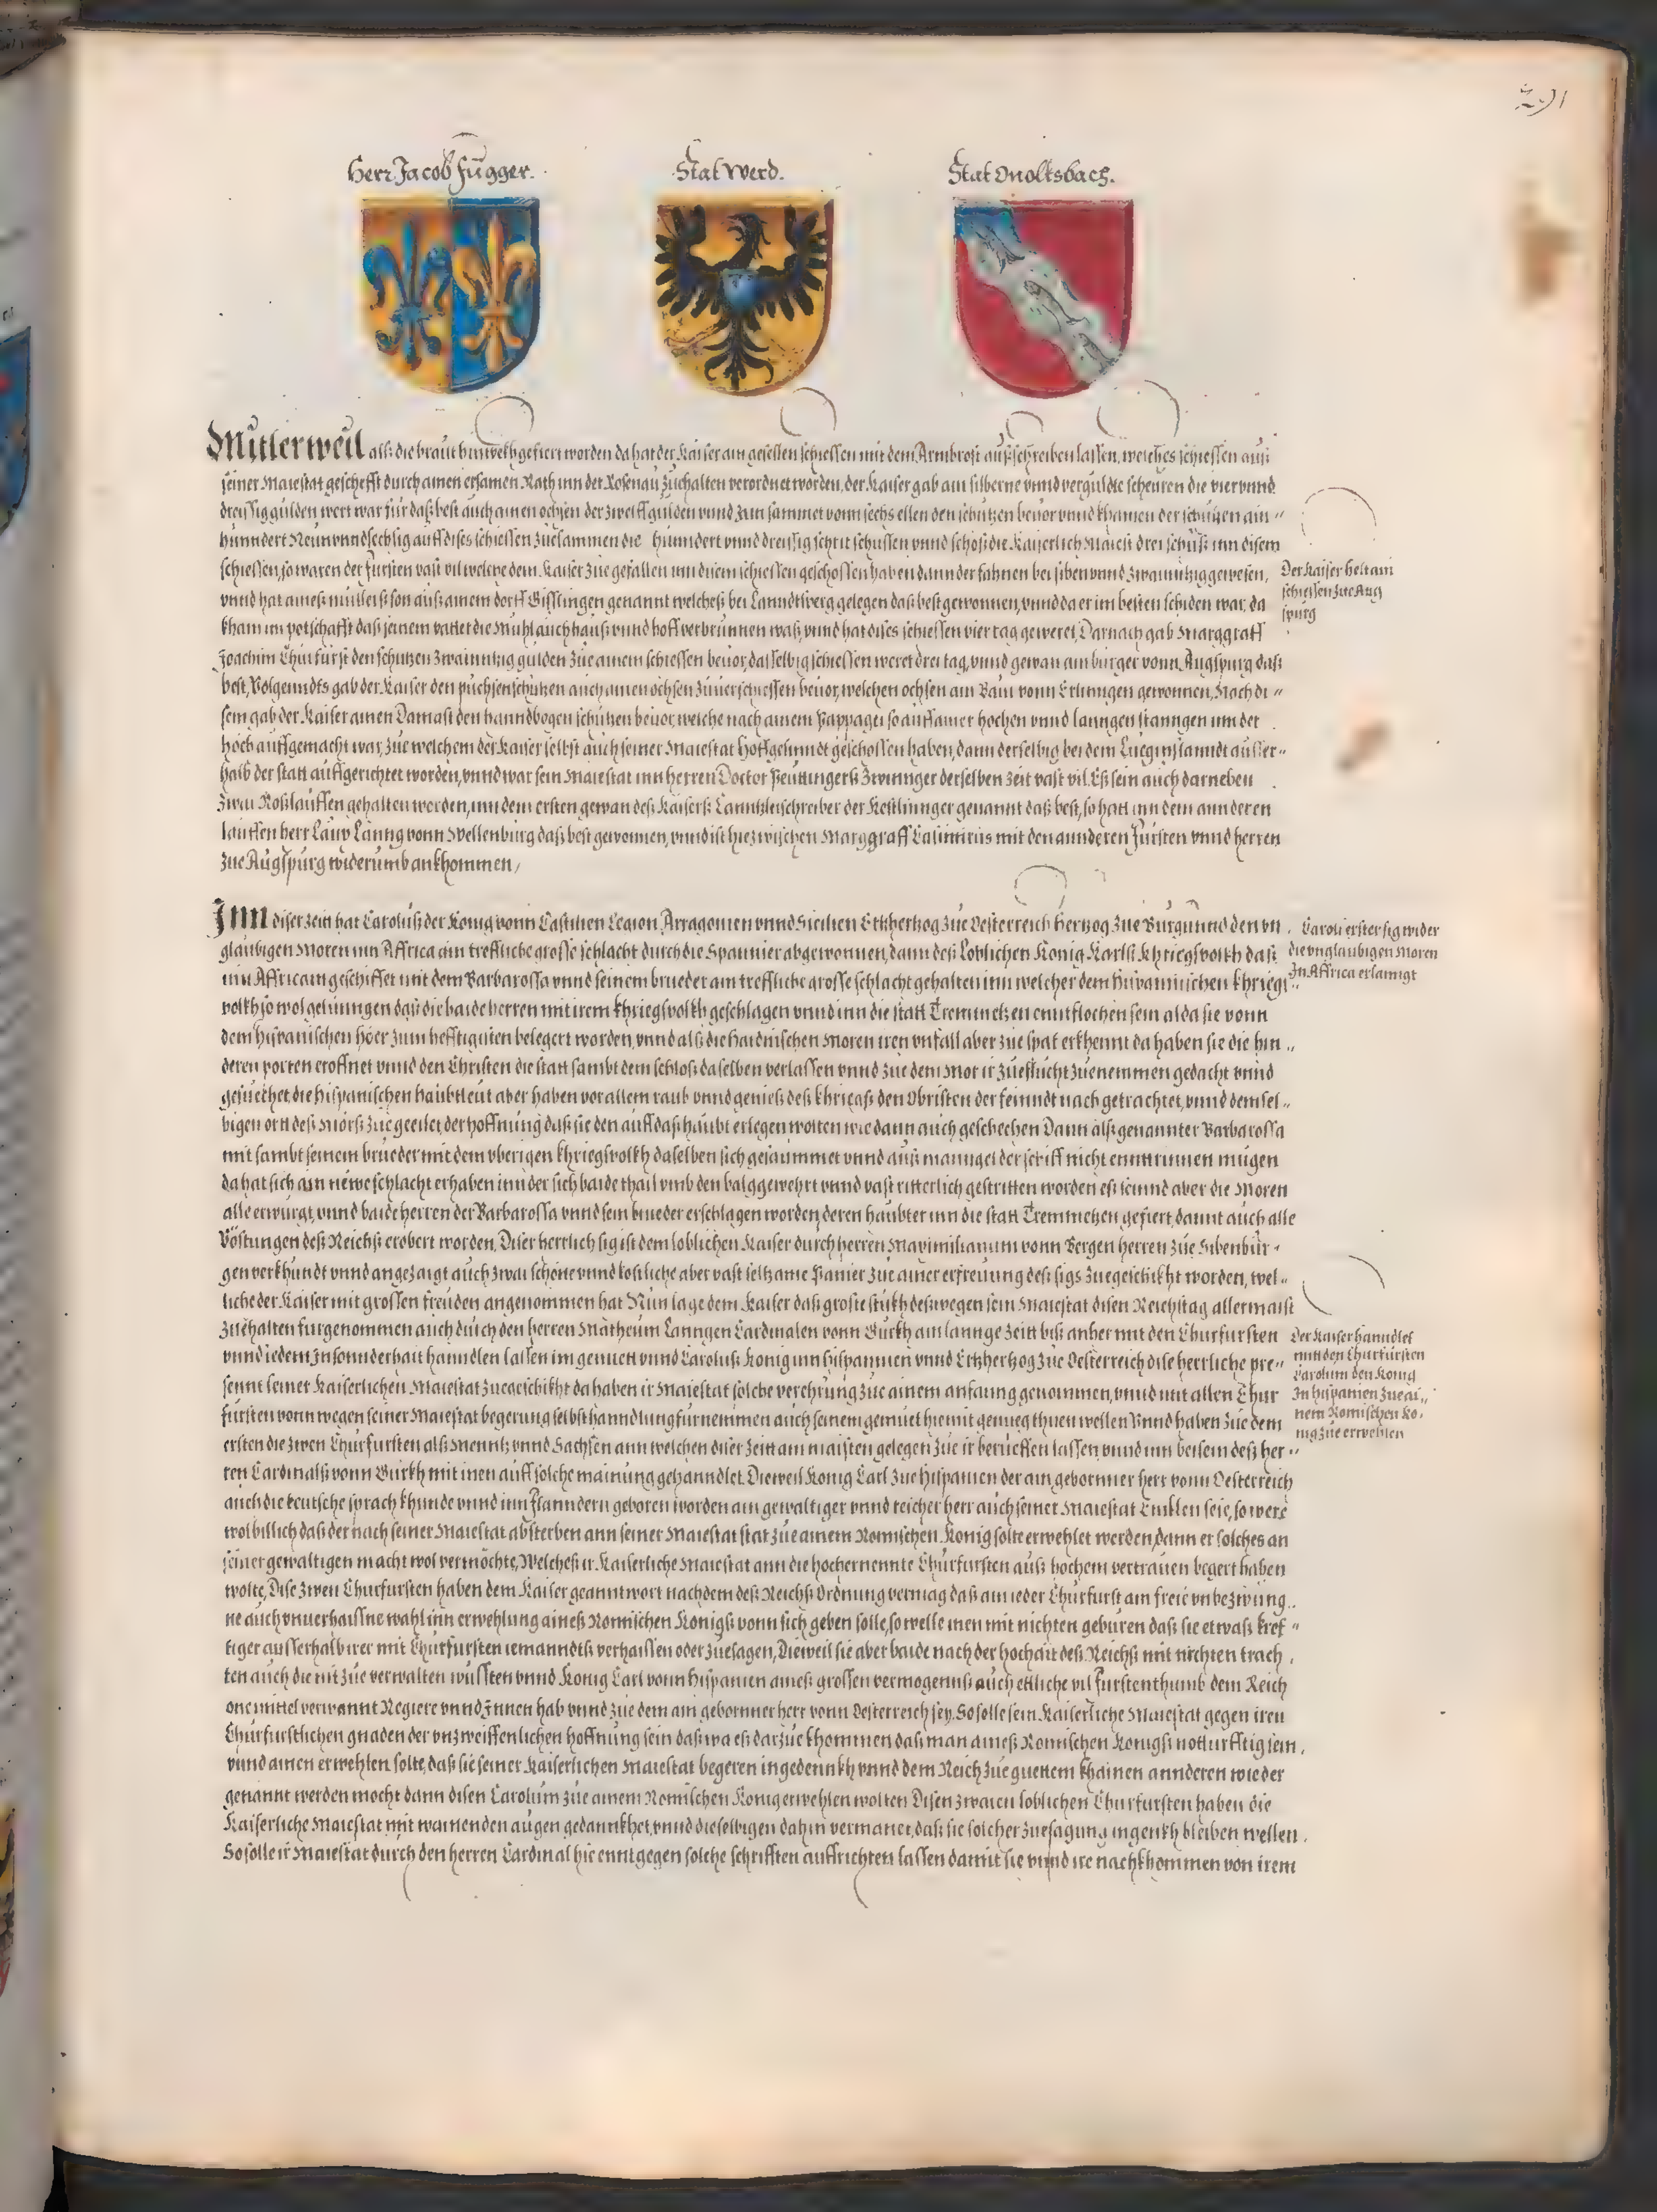 291
Herr Jacob Fugger.
Stat Werd.
Stat Onoltsbach.
Mitlerweil als die braut hinwekh gefiert worden da hat der Kaiser ain gesellen schiessen mit dem Armbrost ausschreiben lassen, welches schiessen aus
seiner Maiestat geschefft durch ainen ersamen Rath inn der Rosenau zuhalten verordnet worden, der Kaiser gab ain silberne vnnd verguldte scheuren die vier vnnd
dreissig gulden wert war für das best auch ainen ochsen der zwelff gulden vnnd zum sammet vonn sechs ellen den schutzen beuor vnnd khamen der schutzen ain
hunndert Neun vnnd sechtzig auff dises schiessen zuesammen die hunndert vnnd dreissig schrit schussen vnnd schoss die Kaiserlich Maiest drei schuss inn disem
schiessen, so waren der fursten vast vil welche dem Kaiser zue gefallen inn disem schiessen geschossen haben dann der fahnen bei siben vnnd zwainntzig gewesen,
vnnd hat aines mullers son aus ainem dorff Gisslingen genannt welches bei Lanndtsperg gelegen das best gewonnen, vnnd da er im besten schiden war, da
kham im potschafft das seinem vatter die Muhl auch haus vnnd hoff verbrunnen was, vnnd hat dises schiessen vier tag geweret, Darnach gab Marggraff
Joachim Churfurst den schutzen zwainntzig gulden zue ainem schiessen beuor, dasselbig schiessen weret drei tag, vnnd gewan ain burger vonn Augspurg das
best, Volgenndts gab der Kaiser den puchsenschutzen auch ainen ochsen zuuerschiessen beuor, welchen ochsen ain Baur vonn Erlinngen gewonnen, Nach di
sem gab der Kaiser ainen Damast den hanndbogen schutzen beuor, welche nach ainem Pappagei so auff ainer hochen vnnd lanngen stanngen inn der
hoch auffgemacht war, zue welchem der Kaiser selbst auch seiner Maiestat Hoffgesinndt geschossen haben, dann derselbig bei dem Lueginslanndt ausser
halb der statt auffgerichtet worden, vnnd war sein Maiestat inn herren Doctor Peutingers Zwinnger derselben zeit vast vil. Es sein auch darneben
zwai Rosslauffen gehalten worden, inn dem ersten gewan des Kaisers Canntzleischreiber der Kestlinnger genannt das best, so hatt inn dem annderen
lauffen herr Laux Lanng vonn Wellenburg das best gewonnen, vnnd ist hiezwischen Marggraff Casimirus mit den annderen Fursten vnnd herren
zue Augspurg widerumb ankhommen,
Der Kaiser helt ain
schiessen zue Aug
spurg
Inn diser zeit hat Carolus der Konig vonn Castilien Legion Arragonien vnnd Sicilien Ertzhertzog zue Oesterreich Hertzog zue Burgunnd den vn
glaubigen Moren inn Affrica ain treffliche grosse schlacht durch die Spannier abgewonnen, dann des Loblichen Konig Karls Khriegsvolkh das
inn Affricam geschiffet mit dem Barbarossa vnnd seinem brueder ain treffliche grosse schlacht gehalten inn welcher dem hispannischen khriegs
volkh so wol gelunngen das die baide herren mit irem khriegsvolkh geschlagen vnnd inn die statt Tremmetzen enntflochen sein alda sie vonn
dem hispanischen höer zum hefftigisten belegert worden, vnnd als die haidnischen Moren iren vnfall aber zue spat erkhennt da haben sie die hin
deren porten eroffnet vnnd den Christen die statt sambt dem schlos daselben verlassen vnnd zue dem Mor ir zueflucht zuenemmen gedacht vnnd
gesuechet, die hispanischen haubtleut aber haben vor allem raub vnnd genies des khriegs den Obristen der feinndt nach getrachtet, vnnd demsel
bigen ort des Mörs zue geeilet der hoffnung das sie den auff das haubt erlegen wolten wie dann auch geschechen Dann als genannter Barbarossa
mit sambt seinem brueder mit dem vberigen khriegsvolkh daselben sich gesaummet vnnd aus manngel der schiff nicht enntrinnen mugen
da hat sich ain neuwe schlacht erhaben inn der sich baide thail vmb den balg gewehrt vnnd vast ritterlich gestritten worden es seinnd aber die Moren
alle erwurgt, vnnd baide herren der Barbarossa vnnd sein brueder erschlagen worden, deren haubter inn die statt Tremmetzen gefiert, damit auch alle
Vöstungen des Reichs erobert worden, Diser herrlich sig ist dem loblichen Kaiser durch herren Maximilianum vonn Bergen herren zue Sibenbur
gen verkhundt vnnd angezaigt auch zwai schöne vnnd kostliche aber vast seltzame Panier zue ainer erfreuung des sigs zuegeschikht worden, wel
liche der Kaiser mit grossen freuden angenommen hat Nun lage dem Kaiser das groste stukh deswegen sein Maiestat disen Reichstag allermaist
zuehalten furgenommen auch durch den herren Matheum Lanngen Cardinalen vonn Gurkh ain lannge zeitt bis anher mit den Churfursten
vnnd iedem Innsonnderhait hanndlen lassen im gemuett vnnd Carolus Konig inn hispannien vnnd Ertzhertzog zue Oesterreich dise herrliche pre
sennt seiner Kaiserlichen Maiestat zuegeschikht da haben ir Maiestat solche verehrung zue ainem anfanng genommen, vnnd mit allen Chur
fursten vonn wegen seiner Maiestat begerung selbst hanndlung furnemmen auch seinem gemuet hiemit genueg thuen wellen Vnnd haben zue dem
ersten die zwen Churfursten als Menntz vnnd Sachsen ann welchen diser zeitt am maisten gelegen zue ir berueffen lassen vnnd inn beisein des her
ren Cardinals vonn Gurkh mit inen auff solche mainung gehanndlet. Dieweil Konig Carl zue Hispanien der ain gebornner herr vonn Oesterreich
auch die teutsche sprach khunde vnnd inn Flanndern geboren worden ain gewaltiger vnnd reicher herr auch seiner Maiestat Enikhlen seie, so were
wol billich das der nach seiner Maiestat absterben ann seiner Maiestat stat zue ainem Romischen Konig solte erwehlet werden, dann er solches an
seiner gewaltigen macht wol vermöchte, Welches ir Kaiserliche Maiestat ann die hochernennte Churfursten aus hochem vertrauen begert haben
wolte, Dise zwen Churfursten haben dem Kaiser geanntwort nachdem des Reichs Ordnung vermag das ain ieder Churfurst ain freie vnbezwung
ne auch vnuerhaissne wahl inn erwehlung aines Romischen Konigs vonn sich geben solle, so welle inen mit nichten geburen das sie etwas kref
tiger ausserhalb irer mit Churfursten iemanndts verhaissen oder zuesagen, Dieweil sie aber baide nach der hochait des Reichs mit nichten trach
ten auch die nit zue verwalten wussten vnnd Konig Carl vonn Hispanien aines grossen vermogenns auch ettliche vil furstenthumb dem Reich
one mittel verwannt Regiere vnnd Innen hab vnnd zue dem ain gebornner herr vonn Oesterreich sey. So solle sein Kaiserliche Maiestat gegen iren
Churfurstlichen gnaden der vnzweiffenlichen hoffnung sein das wa es darzue khommen das man aines Romischen Konigs notturfftig sein
vnnd ainen erwehlen solte, das sie seiner Kaiserlichen Maiestat begeren ingedennkh vnnd dem Reich zue guettem khainen annderen wieder
genannt werden mocht dann disen Carolum zue ainem Romischen Konig erwehlen wolten Disen zwaien loblichen Churfursten haben die
Kaiserliche Maiestat mit wainenden augen gedannkhet, vnnd dieselbigen dahin vermanet, das sie solcher zuesagung ingenkh bleiben wellen.
So solle ir Maiestat durch den herren Cardinal hie enntgegen solche schrifften auffrichten lassen damit sie vnnd ire nachkhommen von irem
Caroli erster sig wider
die vnglaubigen Moren
In Affrica erlanngt
Der Kaiser hanndlet
mit den Churfursten
Carolum den Konig
In hispanien zue ai
nem Romischen Ko
nig zue erwehlen